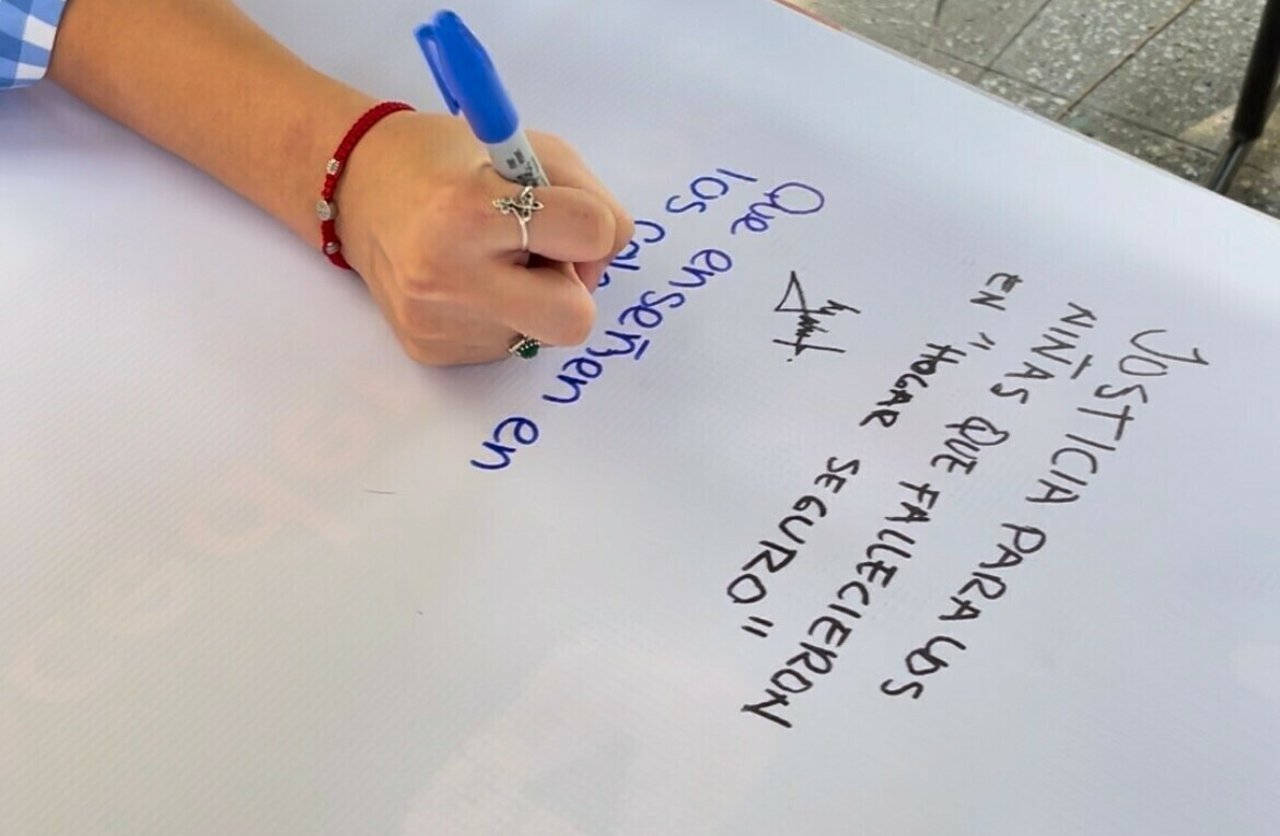 JUSTICIA PARA LOS
NIÑAS QUE FALLECIERON
EN "HOGAR SEGURO"
Que enseñen en
los